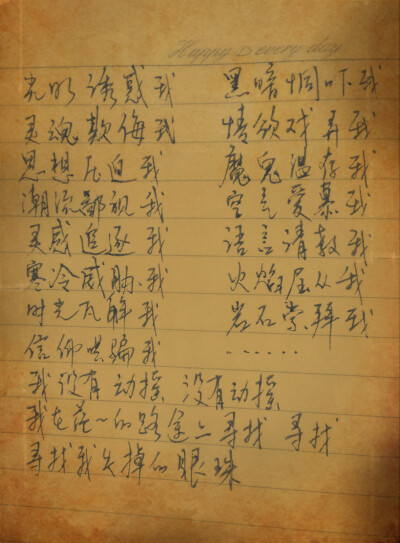 Happy every day
光明诱惑我 黑暗恫吓我
灵魂欺侮我 情欲戏弄我
思想压迫我 魔鬼温存我
潮流鄙视我 空气爱慕我
灵感追逐我 语言请教我
寒冷威胁我 火焰屈从我
时光瓦解我 岩石崇拜我
信仰哄骗我 ......
我没有动摇 没有动摇
我在茫~的路途上寻找 寻找
寻找我失掉的眼珠